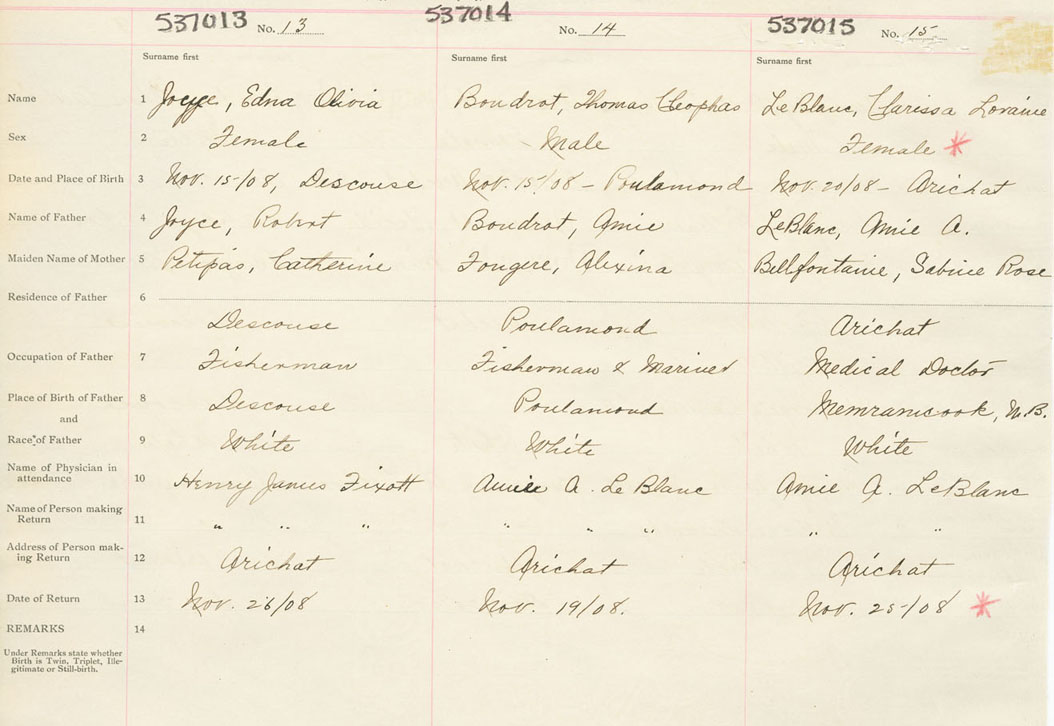 537013 No. 13 537014 No. 14 537015 No. 15
Surname first Surname first Surname first
Name 1 Joyce, Edna Olivia Boudrot, Thomas Cleophas LeBlanc, Clarissa Loraine
Sex 2 Female Male Female *
Date and Place of Birth 3 Nov. 15/08, Descouse Nov. 15/08 - Poulamond Nov. 20/08 - Arichat
Name of Father 4 Joyce, Robert Boudrot, Amie LeBlanc, Amie A.
Maiden Name of Mother 5 Petipas, Catherine Fougere, Alexina Bellfontaine, Sabine Rose
Residence of Father 6
Descouse Poulamond Arichat
Occupation of Father 7 Fisherman Fisherman & Mariner Medical Doctor
Place of Birth of Father 8 Descouse Poulamond Memramcook, N.B.
and
Race of Father 9 White White White
Name of Physician in
attendance 10 Henry James Fixott Amie A. LeBlanc Amie A. LeBlanc
Name of Person making
Return 11 " " " " " " " "
Address of Person mak-
ing Return 12 Arichat Arichat Arichat
Date of Return 13 Nov. 26/08 Nov. 19/08. Nov. 25/08 *
REMARKS 14
Under Remarks state whether
Birth is Twin, Triplet, Ille-
gitimate or Still-birth.